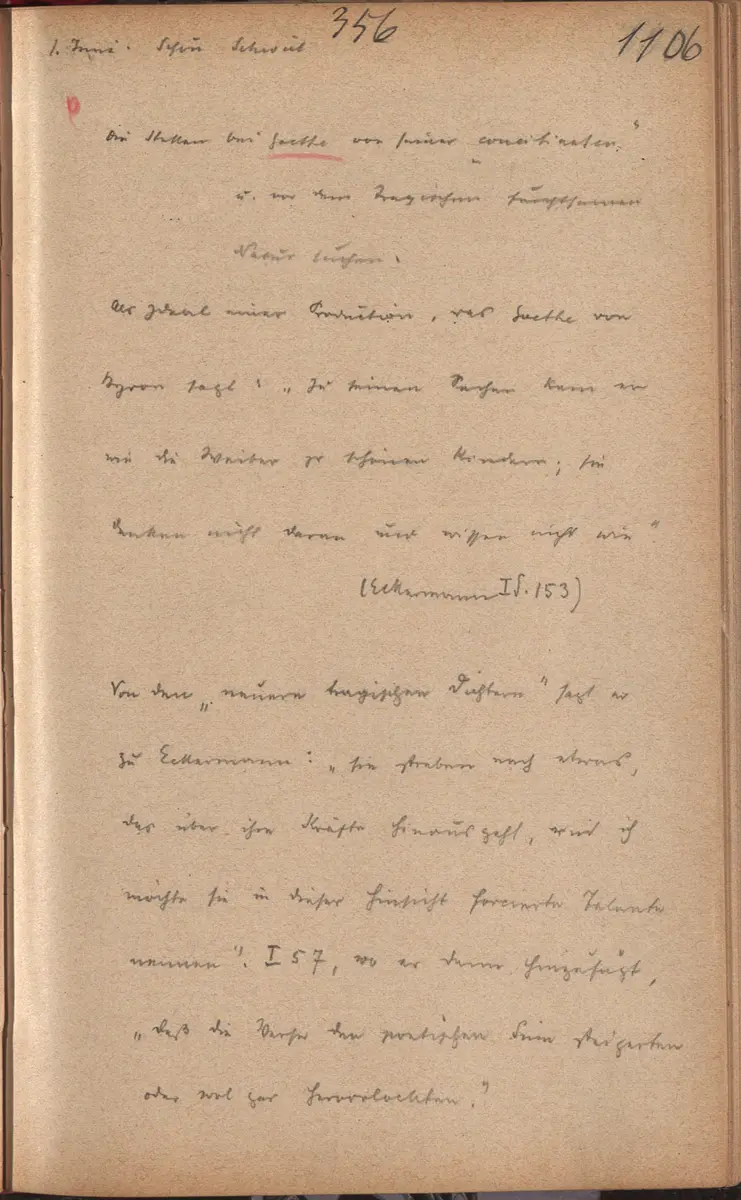 356
1106
1. Juni.
Die Stellen bei Goethe von seiner „conciliaten"
u. vor dem Tragischen
Natur suchen.
Als Ideal einer Production, was Goethe von
Byron sagt: „Zu seinen Sachen kam er
wie die Weiber zu schönen Kindern; sie
denken nicht daran und wissen nicht wie"
(Eckermann I S. 153)
Von den „neuern tragischen Dichtern" sagt er
zu Eckermann: „sie streben nach etwas,
das über ihre Kräfte hinausgeht, und ich
möchte sie in dieser Hinsicht forcierte Talente
nennen". I 57, wo er dann hinzufügt,
„daß die Verse den poetischen Sinn steigerten
oder wol gar hervorlockten."